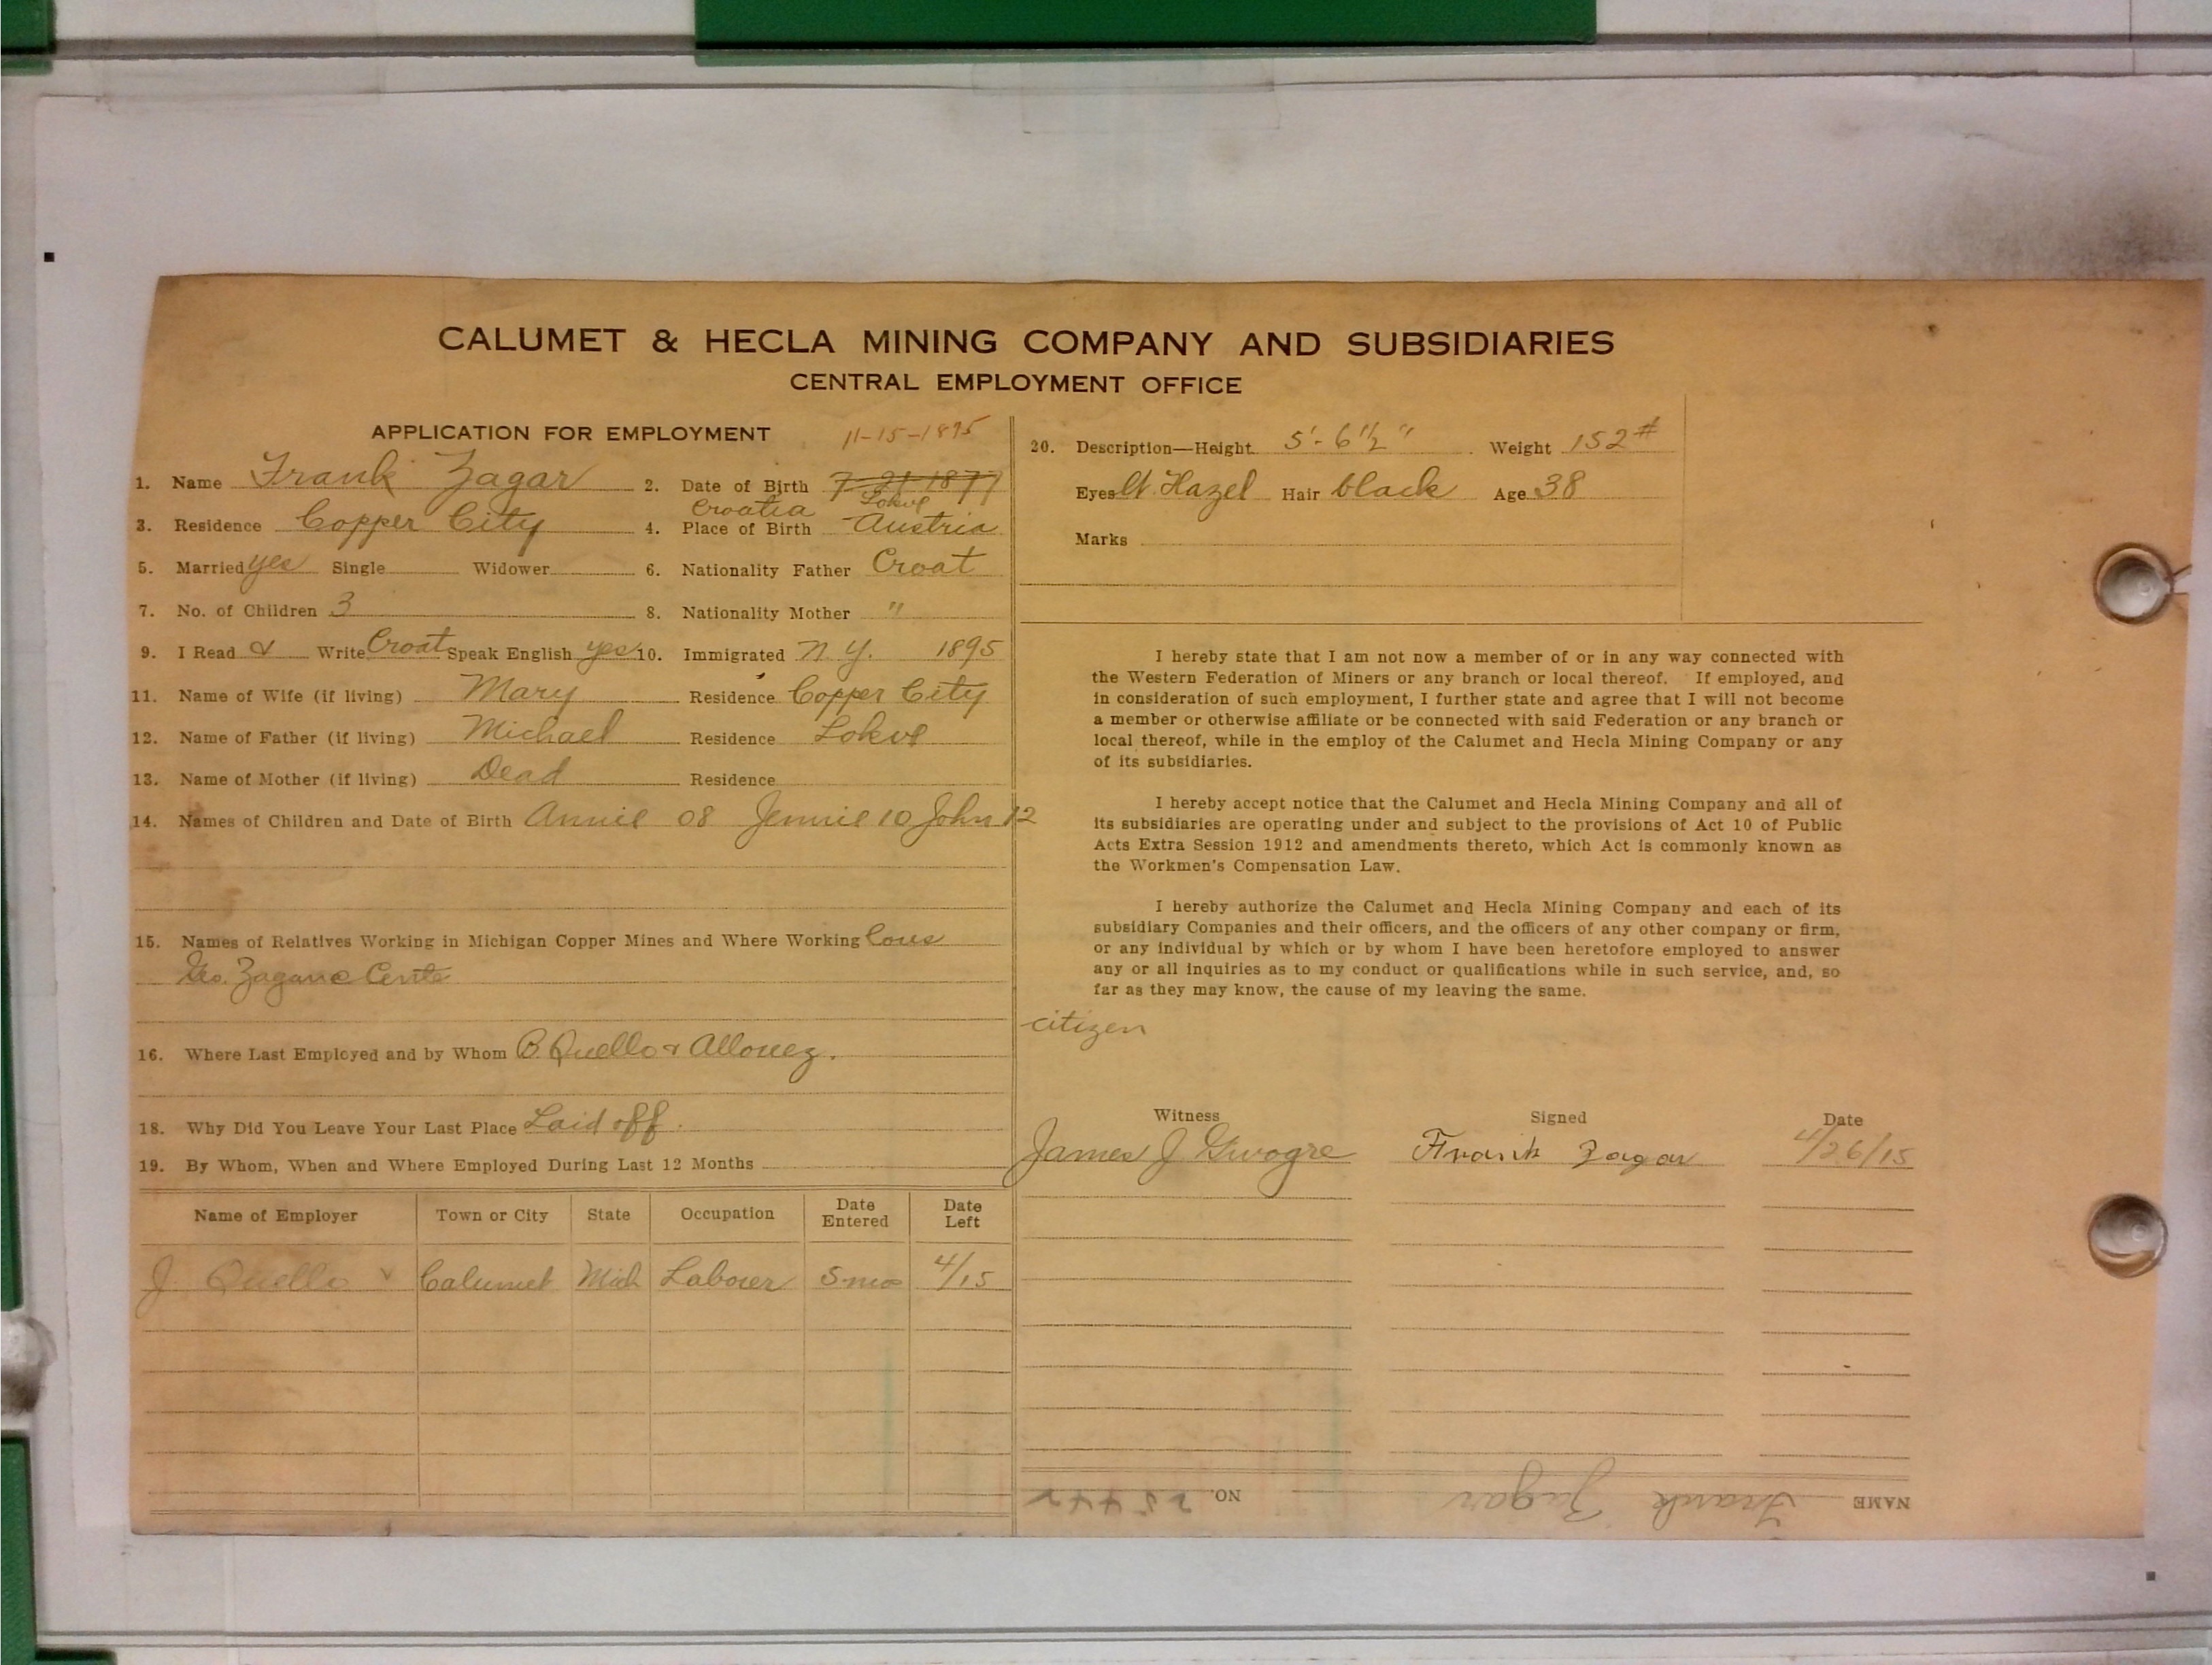 CALUMET & HECLA MINING COMPANY AND SUBSIDIARIES
CENTRAL EMPLOYMENT OFFICE
APPLICATION FOR EMPLOYMENT 11-15-1895
1. Name Frank Zagar 2. Date of Birth 7-21-1877
Croatia Lokve
3. Residence Copper City 4. Place of Birth Austria
5. Married yes Single Widower 6. Nationality Father Croat
7. No. of Children 3 8. Nationality Mother "
9. I Read & Write Croat Speak English yes 10. Immigrated N.Y. 1895
11. Name of Wife (if living) Mary Residence Copper City
12. Name of Father (if living) Michael Residence Lokve
13. Name of Mother (if living) Dead Residence
14. Names of Children and Date of Birth Annie 08 Jennie 10 John 12
15. Names of Relatives Working in Michigan Copper Mines and Where Working Cous
Geo. Zagar
16. Where Last Employed and by Whom B. Quello & Allouez.
18. Why Did You Leave Your Last Place Laid off.
19. By Whom, When and Where Employed During Last 12 Months
Name of Employer Town or City State Occupation Date Entered Date Left
J. Quello v Calumet Mich Laborer 5 mos 4/15
20. Description—Height 5'-6 1/2" Weight 152#
Eyes Lt. Hazel Hair black Age 38
Marks
I hereby state that I am not now a member of or in any way connected with
the Western Federation of Miners or any branch or local thereof. If employed, and
in consideration of such employment, I further state and agree that I will not become
a member or otherwise affiliate or be connected with said Federation or any branch or
local thereof, while in the employ of the Calumet and Hecla Mining Company or any
of its subsidiaries.
I hereby accept notice that the Calumet and Hecla Mining Company and all of
its subsidiaries are operating under and subject to the provisions of Act 10 of Public
Acts Extra Session 1912 and amendments thereto, which Act is commonly known as
the Workmen's Compensation Law.
I hereby authorize the Calumet and Hecla Mining Company and each of its
subsidiary Companies and their officers, and the officers of any other company or firm,
or any individual by which or by whom I have been heretofore employed to answer
any or all inquiries as to my conduct or qualifications while in such service, and, so
far as they may know, the cause of my leaving the same.
citizen
Witness Signed Date
James J Frank Zagar 4/26/15
NAME Frank Zagar NO. 25442